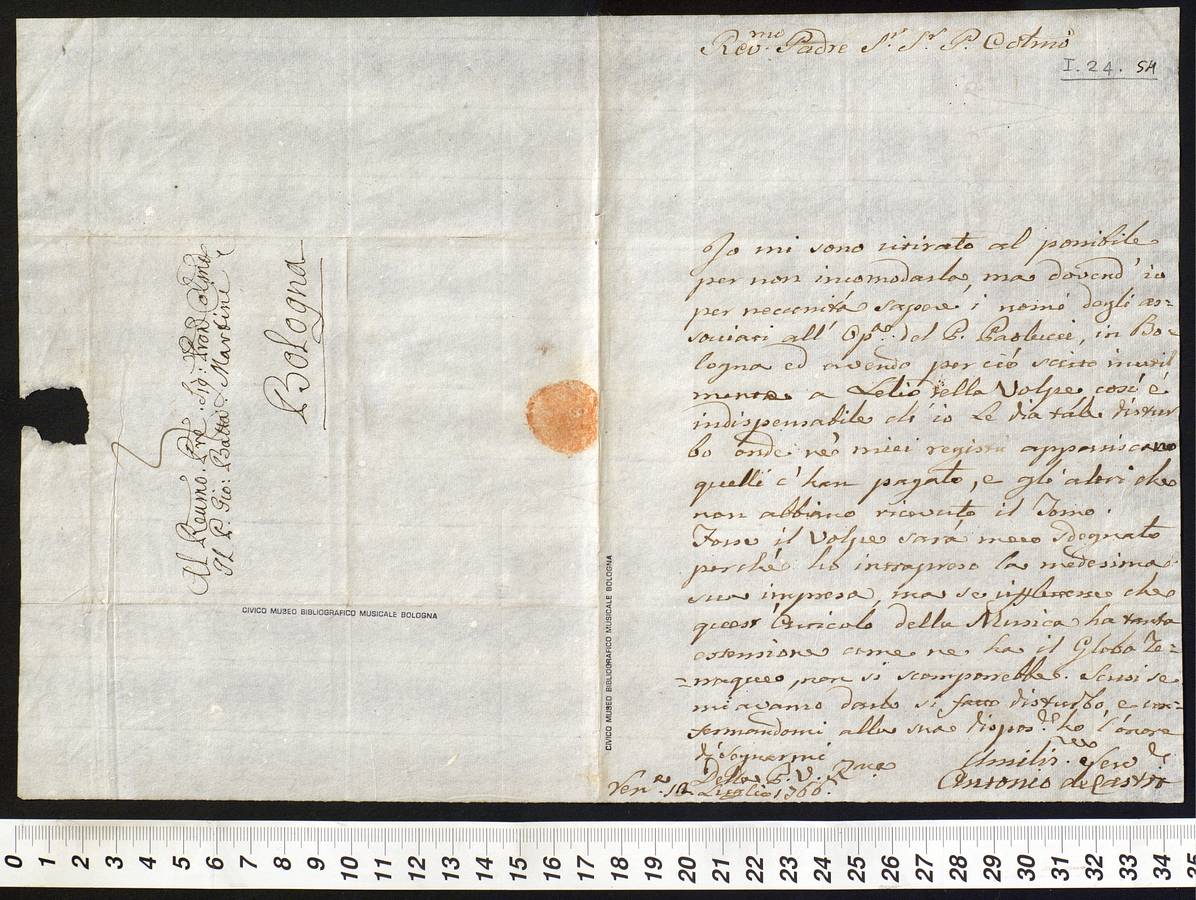 Al Reumo. Pre. Sig: Pron Colmo
Il P. Gio: Batta Martini
Bologna
CIVICO MUSEO BIBLIOGRAFICO MUSICALE BOLOGNA
CIVICO MUSEO BIBLIOGRAFICO MUSICALE BOLOGNA
Rev.mo Padre Sr. Sr. P. Colmo
I. 24. 54
Io mi sono ritirato al possibile
per non incomodarla, ma dovend' io
per necessità sapere i nomi degli as=
sociati all' Op.a del P. Paolucci, in Bo=
logna ed avendo perciò scritto inutil
mente a Lelio della Volpe così è
indispensabile ch' io Le dia tale distur
bo onde ne' miei registri appariscano
quelli c' han pagato, e gli altri che
non abbino ricevuto il Tomo.
Forse il Volpe sarà meco sdegnato
perchè ho intrapreso la medesima
sua impresa, ma se riflettesse che
quest' articolo della Musica ha tanta
estensione come ne ha il Globo Te=
=rraqueo, non si scomporrebbe. Scusi se
mi avanzo darle sì fatto disturbo, e con=
fermandomi alla sua dispos.e ho l'onore
di segnarmi
Della P. V. R.ma
Ven.a 12 Luglio 1766.
Umilis.o e Dev.o
Antonio de Castro